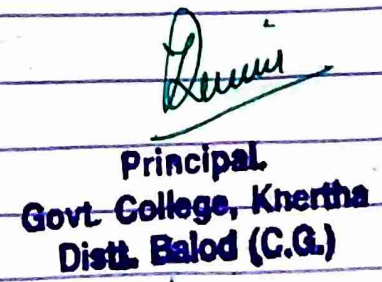 Principal.
Govt. College, Khertha
Distt. Balod (C.G.)